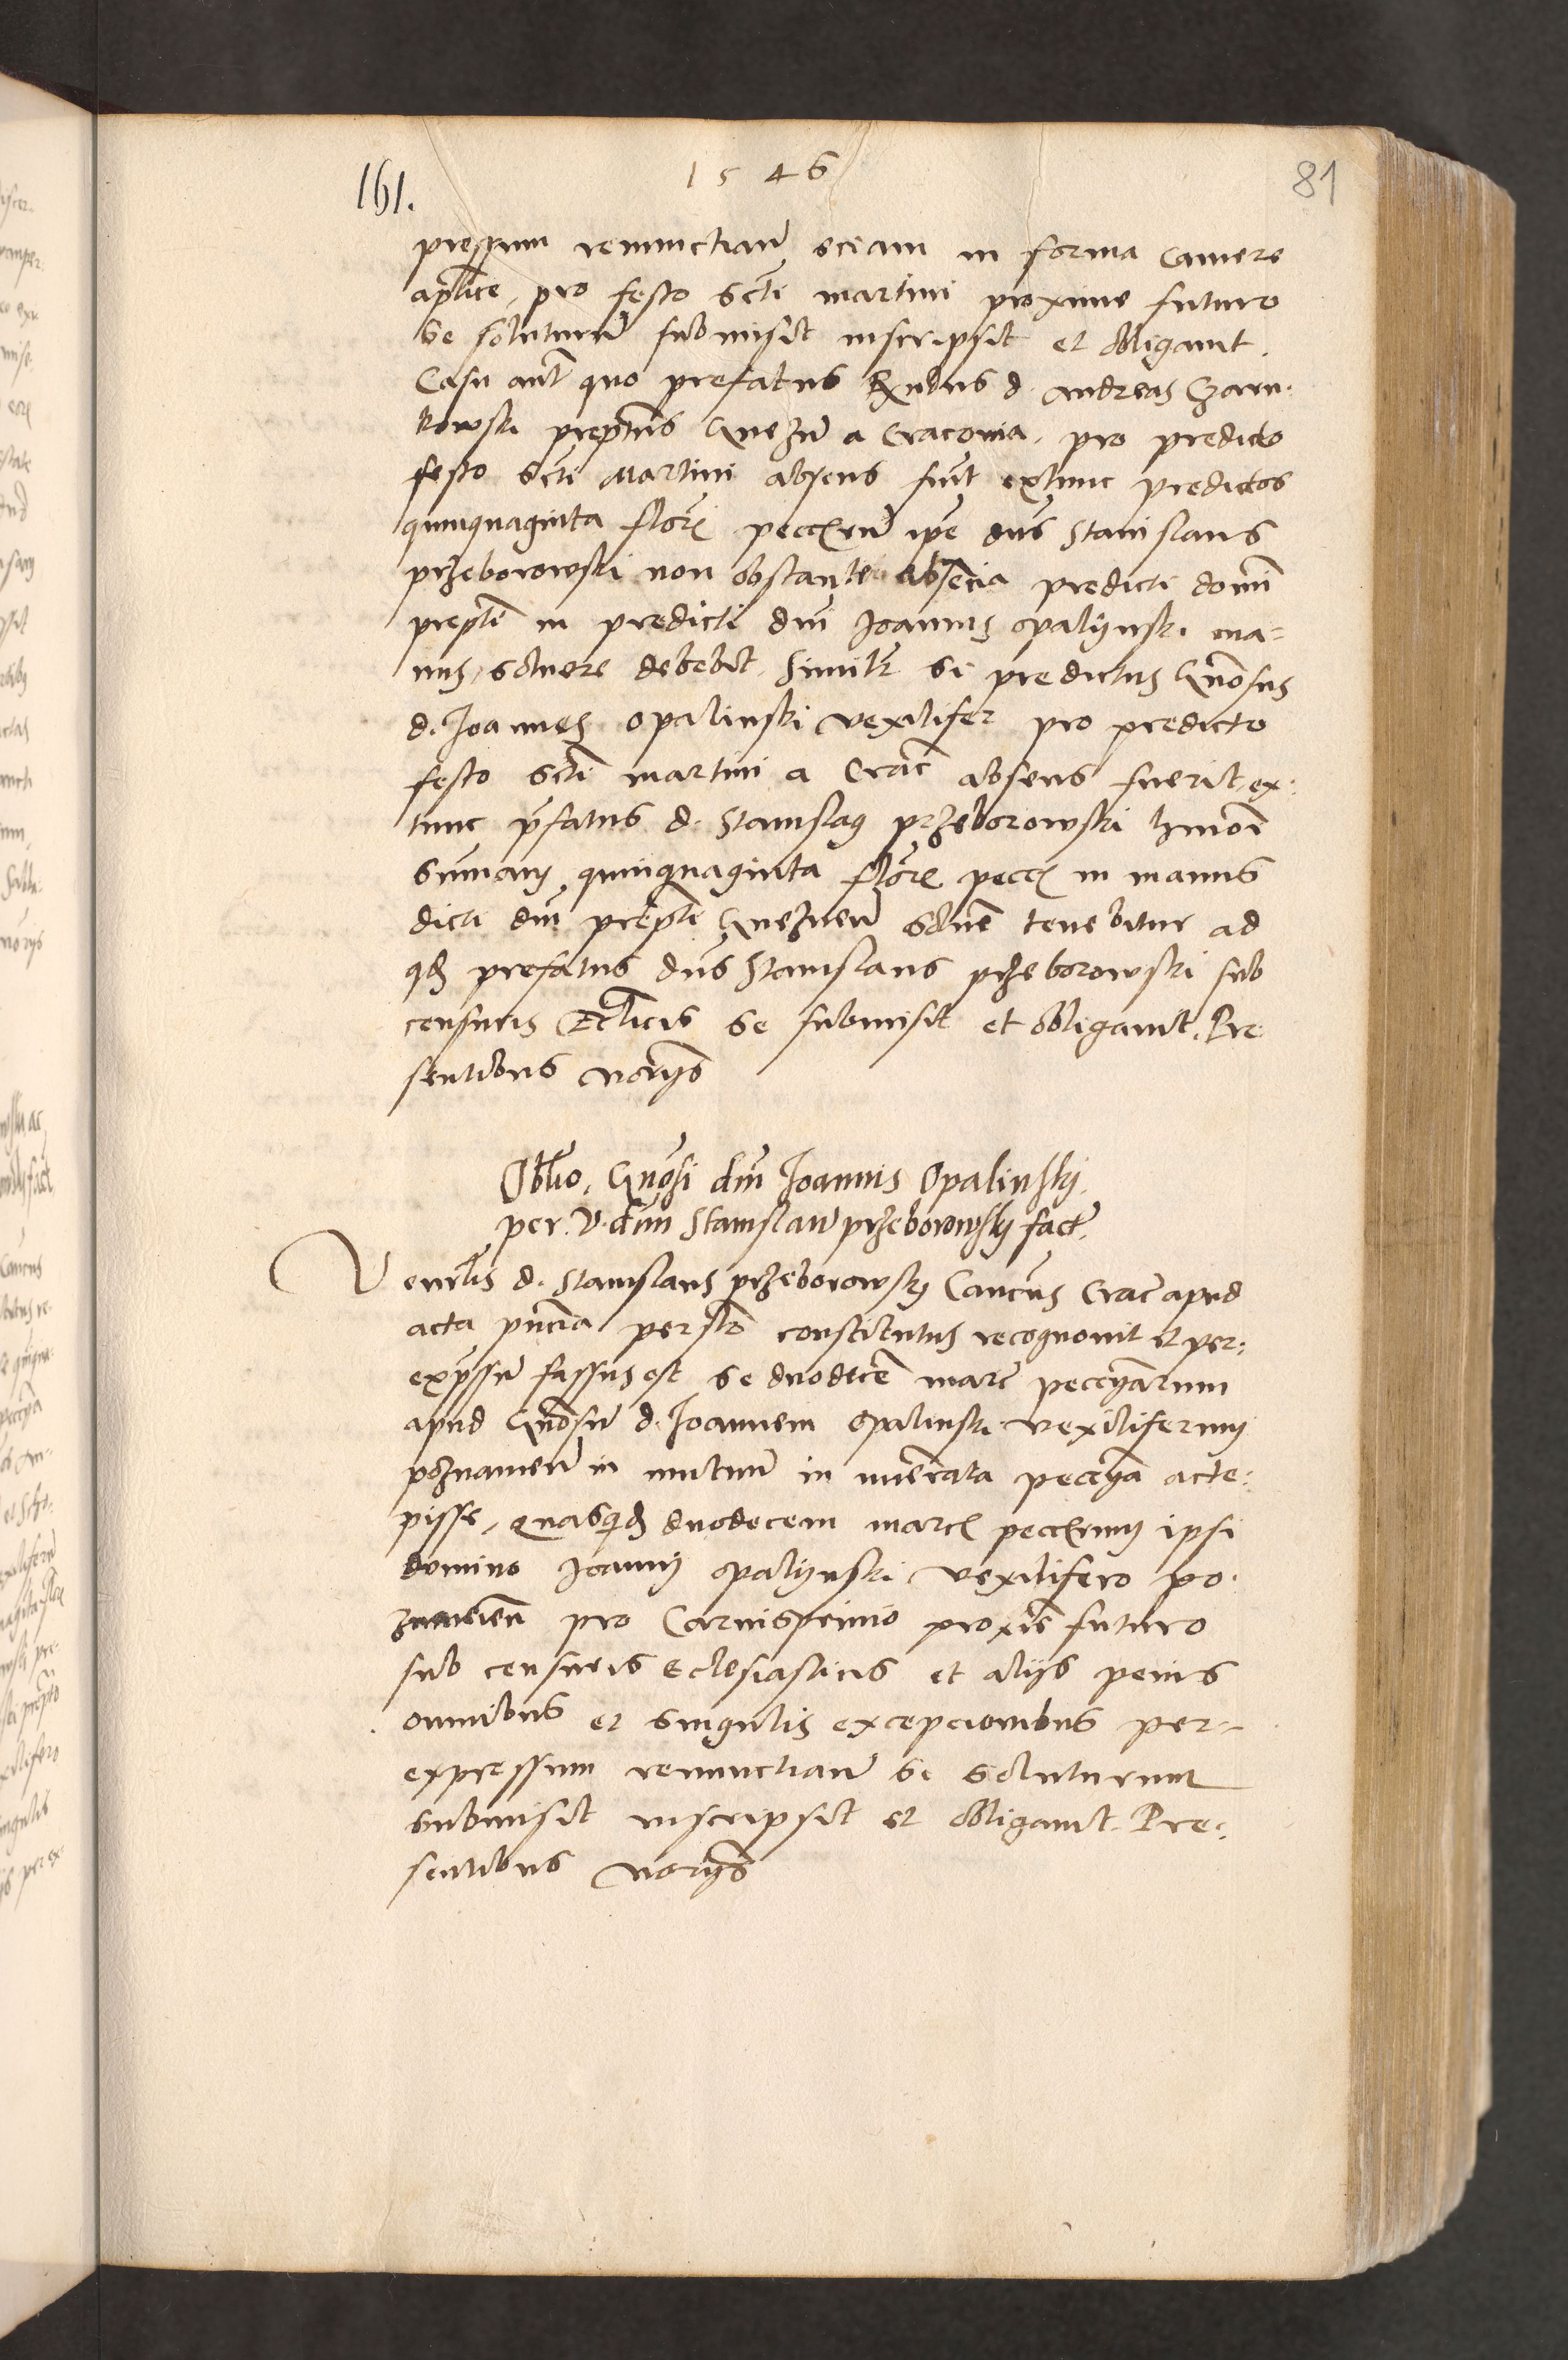 1546
161.
81
pressum renunctian̄ eciam in forma Camere
aplice, pro festo scti martini proxime futuro
se soluturū submisit inscripsit et obligauit.
Casu aut̄ quo prefatus Rndus d. Andreas Czarn:
kowski preptus Gnezn̄ a Cracouia, pro predicto
festo scti Martini absens fuit extunc predictos
quinquaginta flor pecc ipe dns Stanislaus
przeborowski non obstante absēcia predicti domī
prepti in predicti dni Joannis opalijnski ma=
nus, soluere debebit. Similr si predictus Gnosus
d. Joannes opalinski vexilifer pro predicto
festo scti martini a Crac absens fuerit, ex:
tunc pfatus d. Stanislaus przeborowski hmoi
sumam quinquaginta flore pecc in manus
dicti dni prepti Gneznen̄ soluē tenebitur ad
qd prefatus dns Stanislaus przeborowski sub
censuris Ecclicis se submisit et obligauit. Pre
sentibus norijs
Obltio, Gnosi dni Joannis Opalinskij
per. V. dnm Stanislaū przeborowskij fact̄.
Venerlis d. Stanislaus przeborowskij Cancus Crac apud
acta pn̄cia personlr constitutus recognouit et per:
expssū fassus est se duodecē marc peccyarum
apud Gnosū d. Joannem opalinski vexiliferum
poznanien̄ in mutuū in numerata peccya acce:
pisse, quasqd duodecem marc pecc ipsi
domino Joannij opalijnski vexilifero po:
znanien̄ pro Carnispriuio proxīe futuro
sub censuris Eclesiasticis et alijs penis
omnibus et singulis excepcionibus per=
expressum renunctian̄ se soluturum
submisit inscripsit et obligauit. Pre:
sentibus norijs